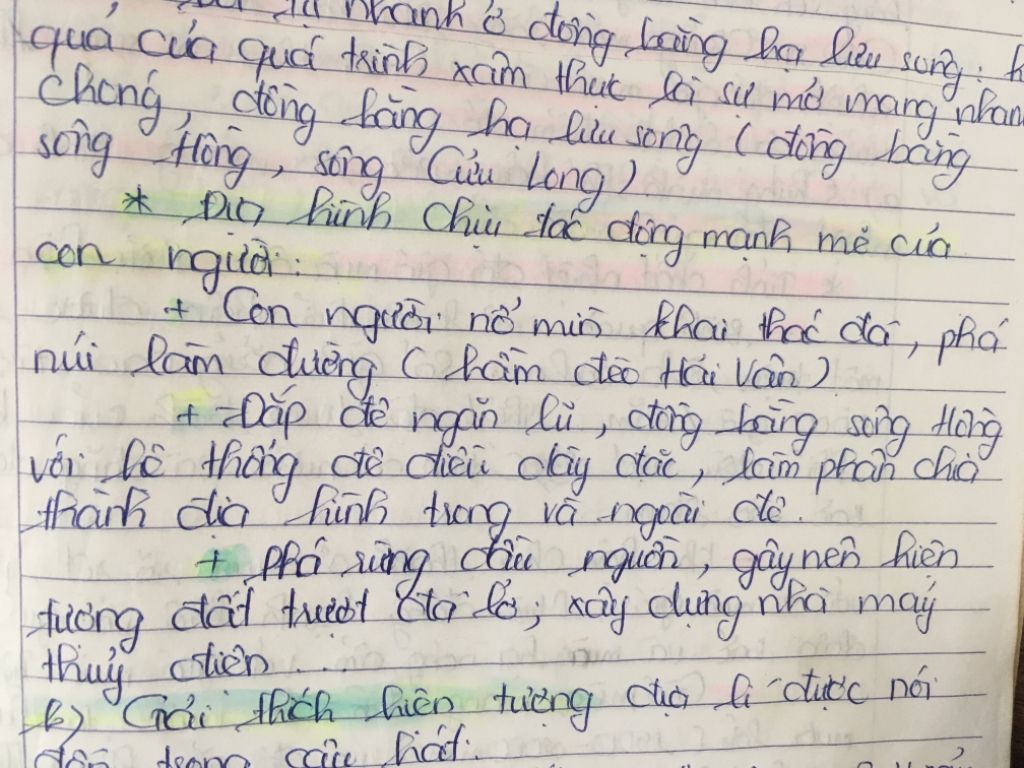 nhanh ở đồng bằng hạ lưu sông:
quả của quá trình xâm thực là sự mở mang nhanh
chóng, đồng bằng hạ lưu sông (đồng bằng
sông Hồng, sông Cửu Long)
* Địa hình chịu tác động mạnh mẽ của
con người:
+ Con người nổ mìn khai thác đá, phá
núi làm đường (hầm đèo Hải Vân)
+ Đắp đê ngăn lũ, đồng bằng sông Hồng
với hệ thống đê điều dày đặc, làm phân chia
thành địa hình trong và ngoài đê.
+ phá rừng đầu nguồn, gây nên hiện
tượng đất trượt đá lở, xây dựng nhà máy
thuỷ điện...
b) Giải thích hiện tượng địa lí được nói
đến trong câu hát: